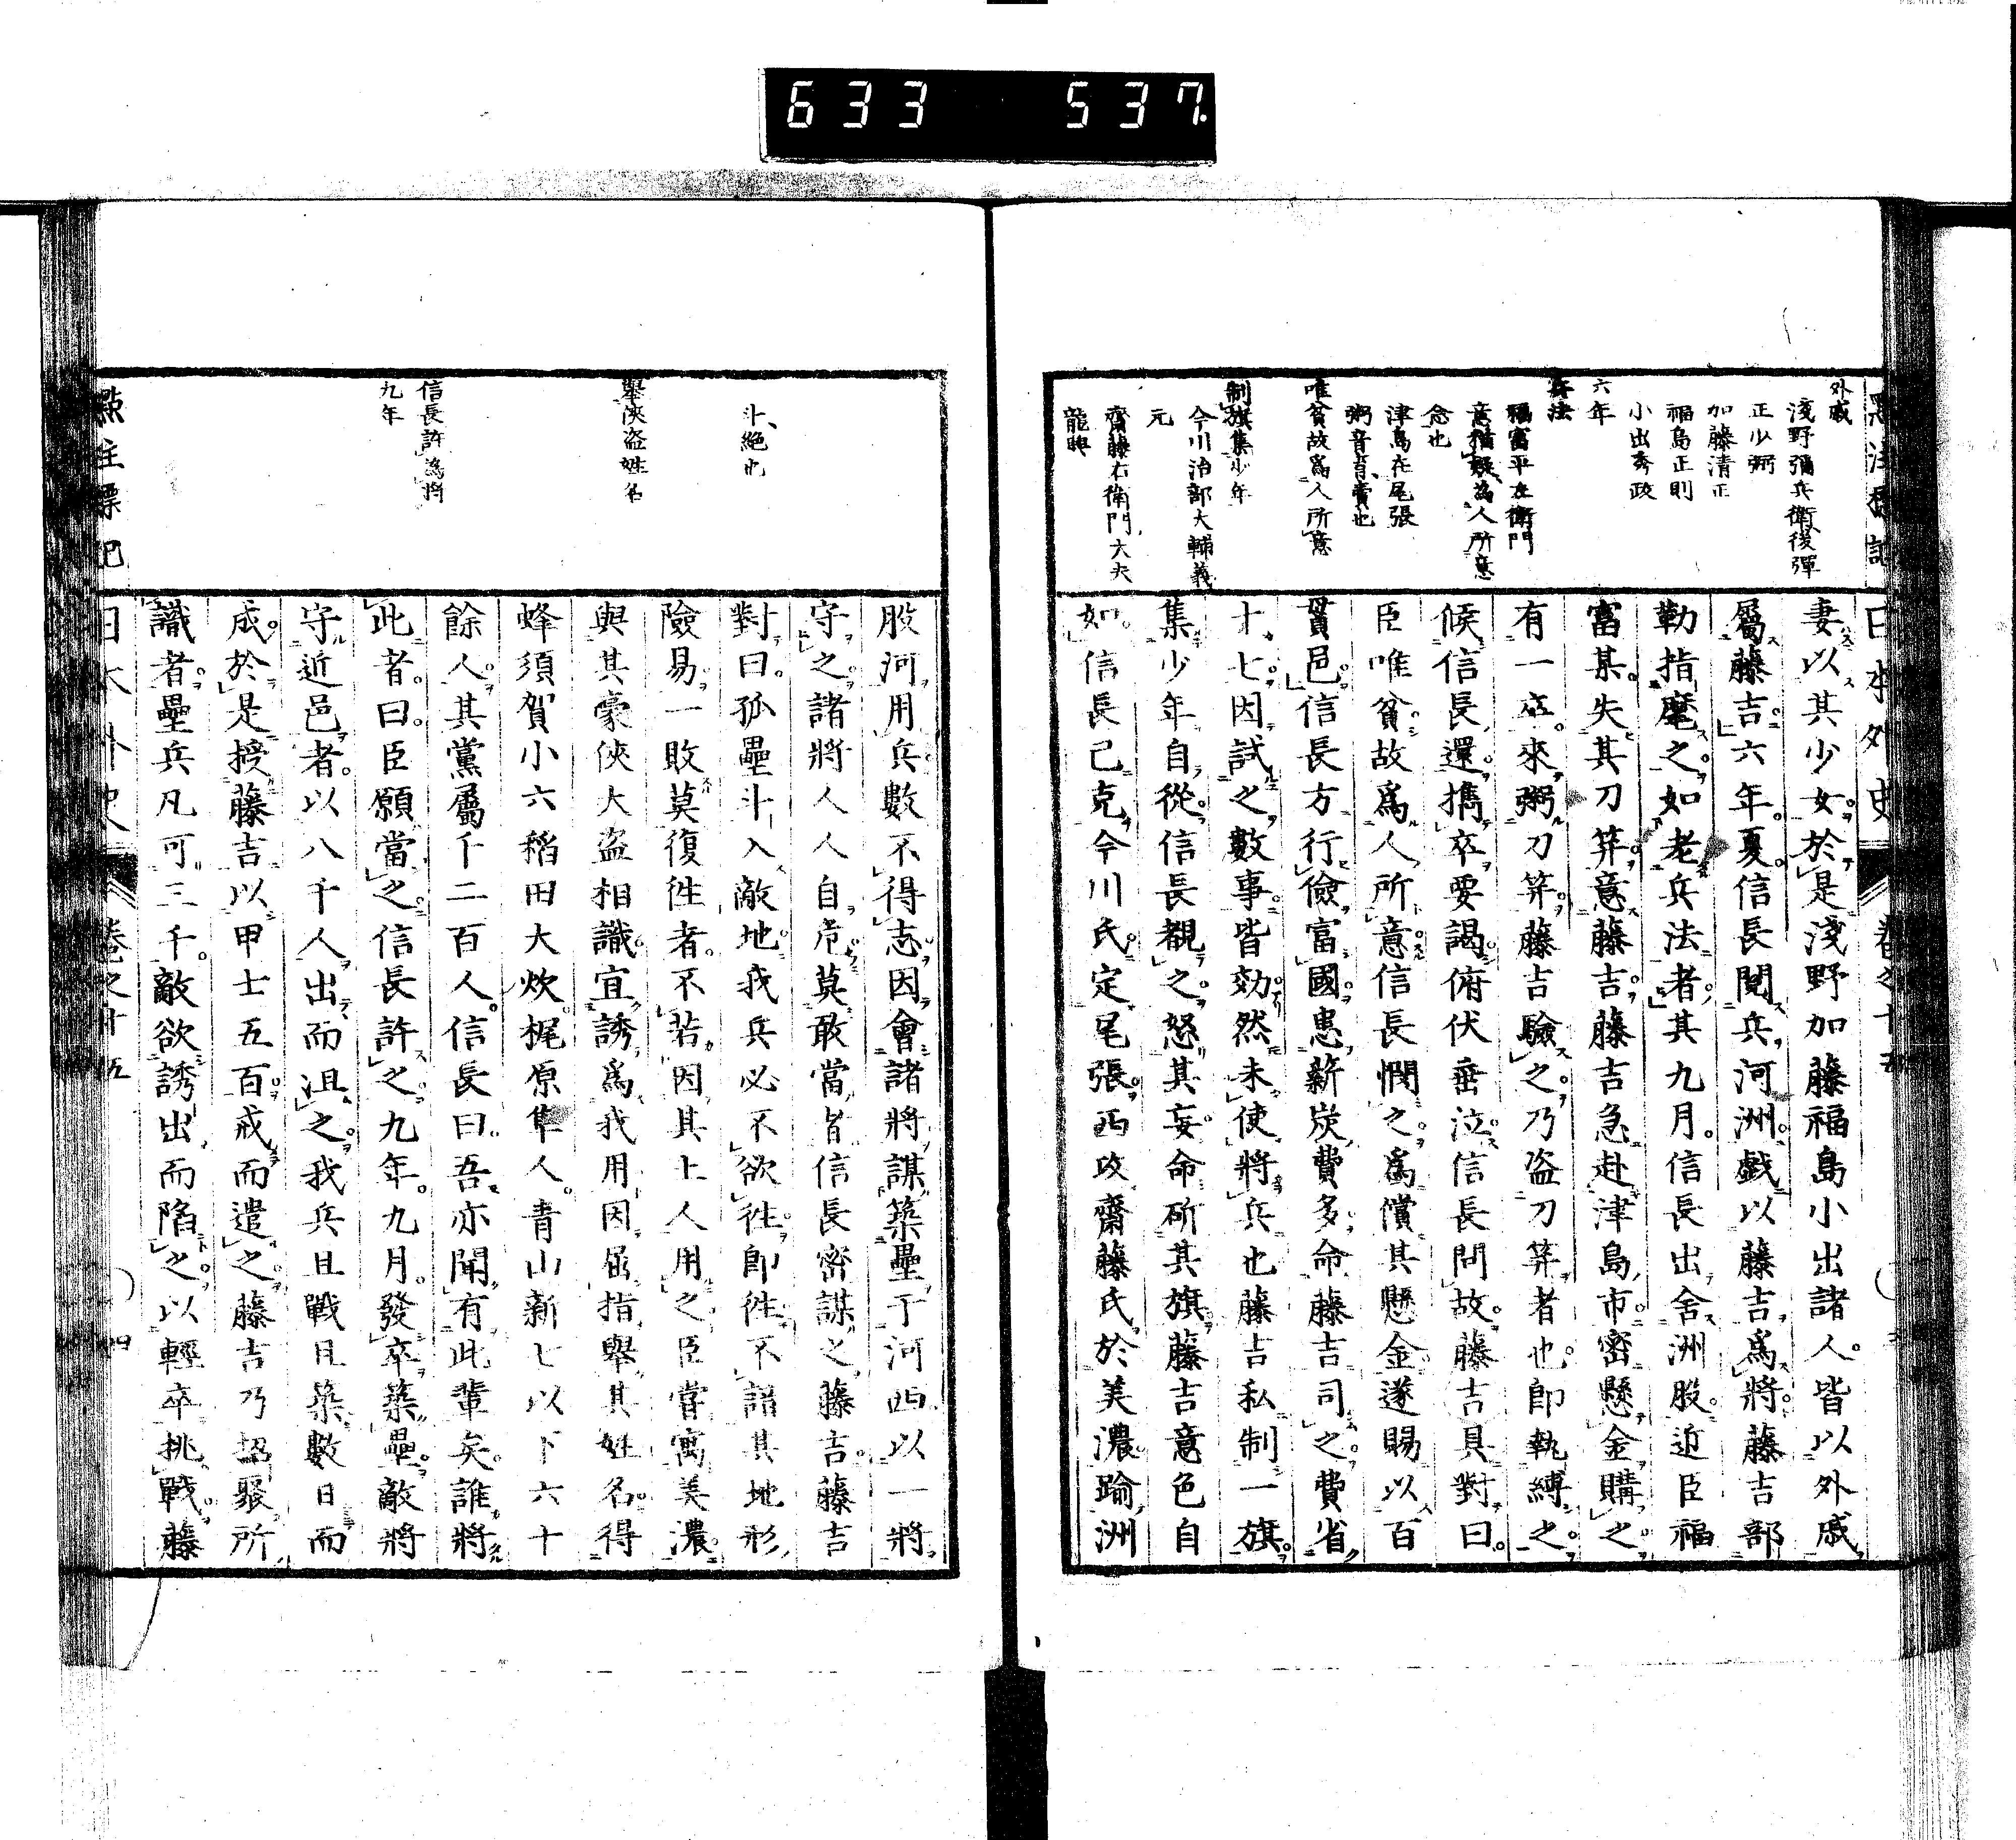 633 537
外戚
淺野彌兵衛後彈
正少弼
加藤清正
福島正則
小出秀政
六年
兵法
福富平左衛門
意猶疑爲人所意
念也
津島在尾張
粥音育賣也
唯貧故爲人所意
制旗集少年
今川治部大輔義
元
齋藤右衛門大夫
龍興
妻以其少女於是淺野加藤福島小出諸人皆以外戚
屬藤吉六年夏信長閱兵河洲戲以藤吉爲將藤吉部
勒指麾之如老兵法者其九月信長出舍洲股近臣福
富某失其刀笄意藤吉藤吉急赴津島市密懸金購之
有一卒來粥刀笄藤吉驗之乃盜刀笄者也卽執縛之
候信長還攜卒要謁俯伏垂泣信長問故藤吉具對曰
臣唯貧故爲人所意信長憫之爲償其懸金遂賜以百
貫邑信長方行儉富國患薪炭費多命藤吉司之費省
十七因試之數事皆効然未使將兵也藤吉私制一旗
集少年自從信長覩之怒其妄命斫其旗藤吉意色自
如信長已克今川氏定尾張西攻齋藤氏於美濃踰洲
斗絕也
擧俠盜姓名
信長許爲將
九年
股河用兵數不得志因會諸將謀築壘于河西以一將
守之諸將人人自危莫敢當者信長密謀之藤吉藤吉
對曰孤壘斗入敵地我兵必不欲往卽往不諳其地形
險易一敗莫復往者不若因其土人用之臣嘗寓美濃
與其豪俠大盜相識宜誘爲我用因屈指擧其姓名得
蜂須賀小六稻田大炊梶原隼人青山新七以下六十
餘人其黨屬千二百人信長曰吾亦聞有此輩矣誰將
此者曰臣願當之信長許之九年九月發卒築壘敵將
守近邑者以八千人出而沮之我兵且戰且築數日而
成於是授藤吉以甲士五百戒而遣之藤吉乃招聚所
識者壘兵凡可三千敵欲誘出而陷之以輕卒挑戰藤
點註標記 日本外史 卷之十五 四